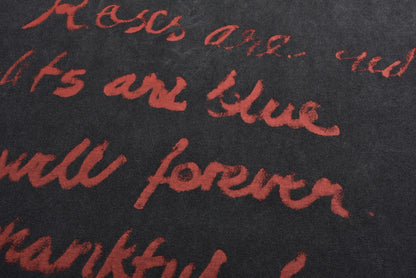 Roses are red
ts are blue
will forever
thankful